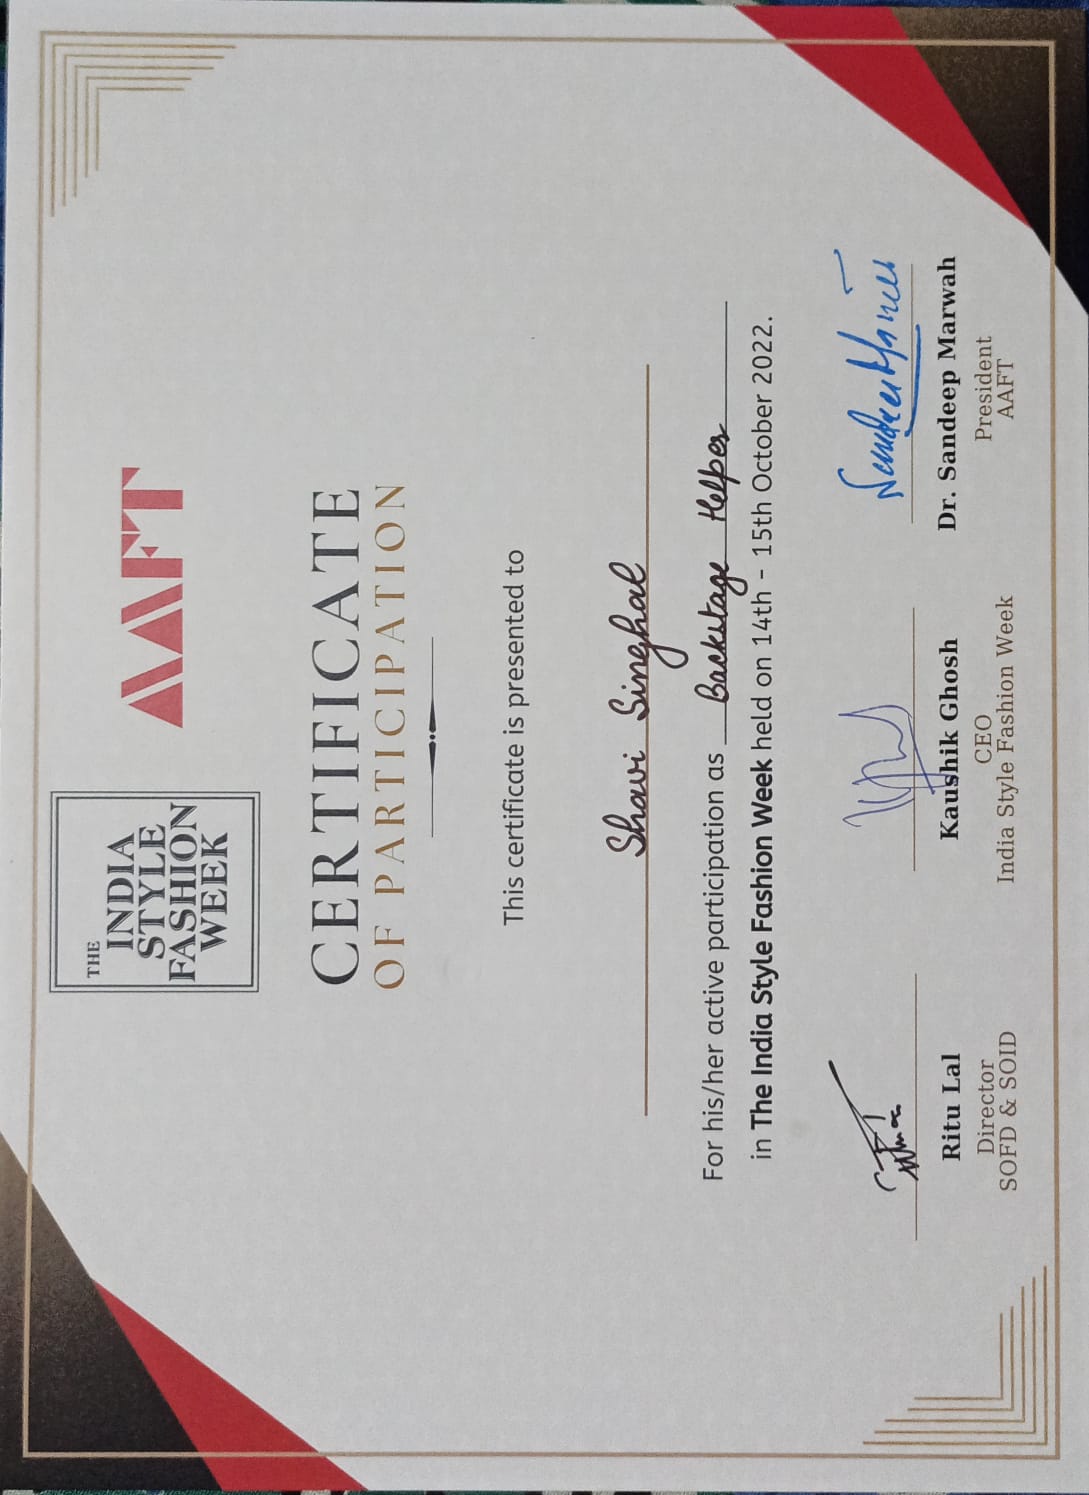 THE
INDIA
STYLE
FASHION
WEEK
AAFT
CERTIFICATE
OF PARTICIPATION
This certificate is presented to
Shavi Singhal
For his/her active participation as Backstage Helper
in The India Style Fashion Week held on 14th - 15th October 2022.
Ritu Lal
Director
SOFD & SOID
Kaushik Ghosh
CEO
India Style Fashion Week
Dr. Sandeep Marwah
President
AAFT